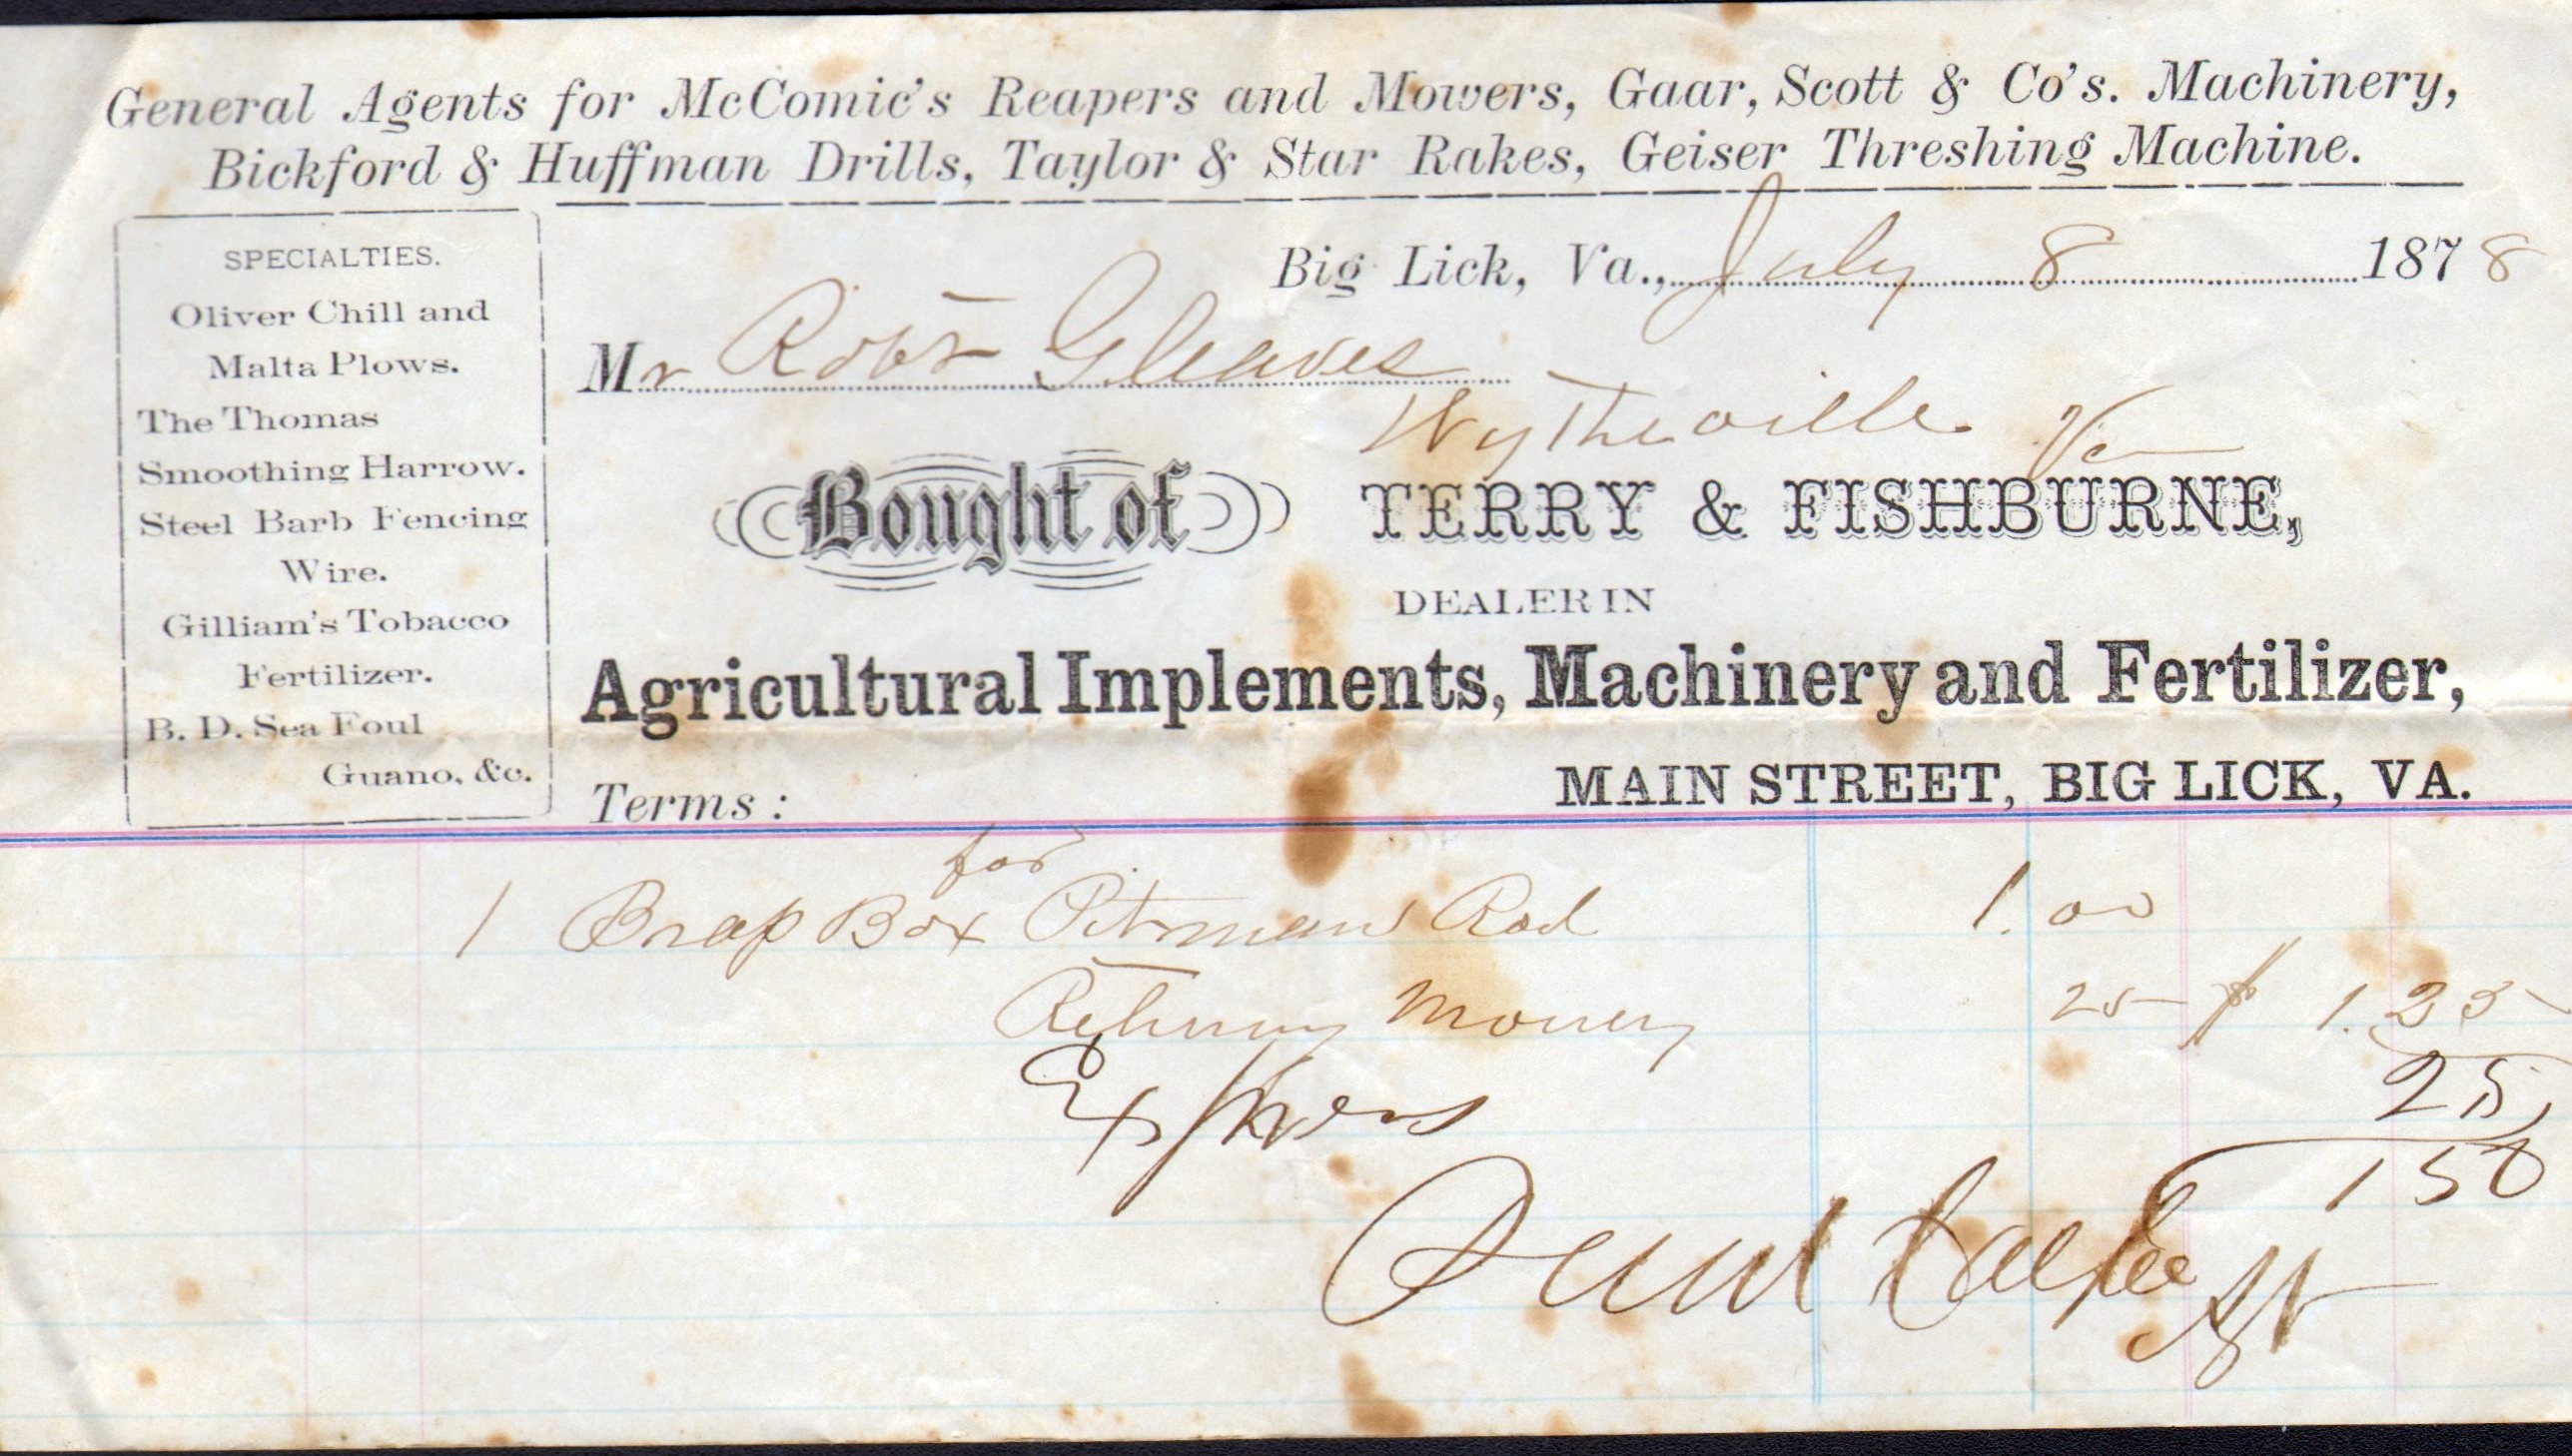 General Agents for McComic's Reapers and Mowers, Gaar, Scott & Co's. Machinery,
Bickford & Huffman Drills, Taylor & Star Rakes, Geiser Threshing Machine.
SPECIALTIES.
Oliver Chill and
Malta Plows.
The Thomas
Smoothing Harrow.
Steel Barb Fencing
Wire.
Gilliam's Tobacco
Fertilizer.
B. D. Sea Foul
Guano, &c.
Big Lick, Va., July 8 1878
Mr Robt Gleaves
Wytheville Va
Bought of TERRY & FISHBURNE,
DEALER IN
Agricultural Implements, Machinery and Fertilizer,
MAIN STREET, BIG LICK, VA.
Terms:
for
1 Brap Box Pitman Rod 1.00
Returning Money 25 $ 1.25
Express 25
150